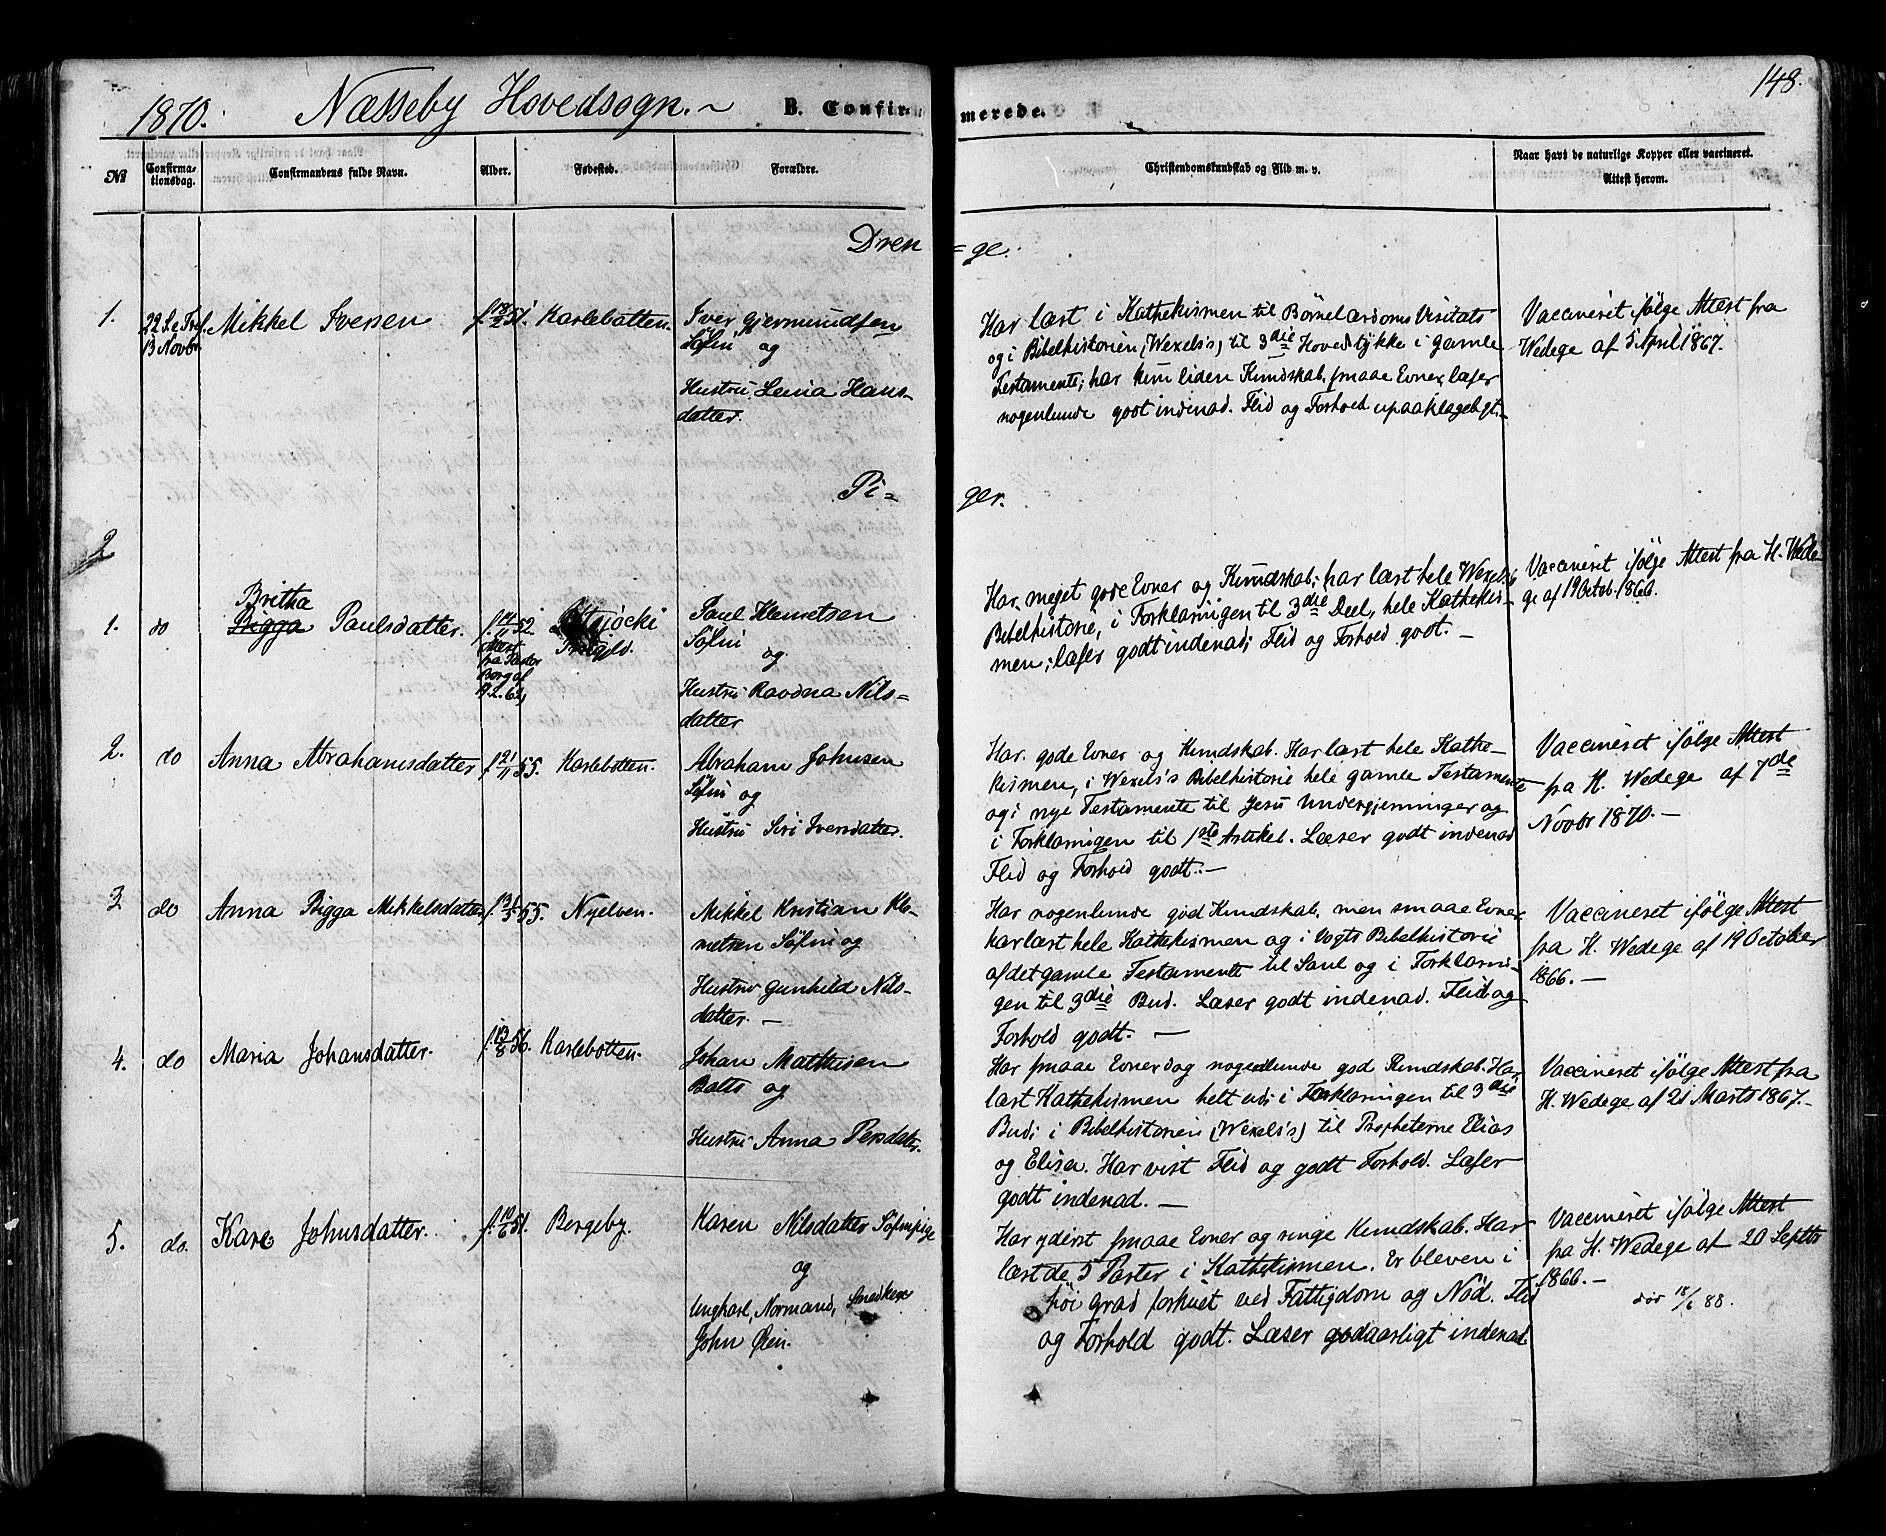 148.
1870. Næsseby Hovedsogn.~ B. Confirmerede.
No
Confirmationsdag.
Confirmandens fulde Navn.
Alder.
Fødested.
Forældre.
Christendomskundskab og Flid m. v.
Naar havd de naturlige Kopper eller vaccineret.
Attest herom.
Dren = ge.
1.
22 S. e Tref.
13 Novbr.
Mikkel Iversen
f. 51.
Karlebotten.
Iver Gjermundsen
Søfin og
Hustru Lema Hans-
datter.
Har læst i Kathekismen til Børnelærdoms Visitats
og i Bibelhistorien, (Wexels's) til 3die Hovedstykke i gamle
Testamente; har kun liden Kundskab, smaae Evner, læser
nogenlunde godt indenad. Flid og Forhold upaaklageligt.-
Vaccineret ifølge Attest fra
Wedege af 5 April 1867.
Pi= ger.
2
1.
do
Britha
Bigga Paulsdatter.
f. 14/11 52.
Attest
fra Pastor
Borg af
Prgjld.
Paul
Søfin
og
Hustru Ravdna Nils=
datter
Har meget gode Evner og Kundskab; har læst hele Wexels's
Bibelhistorie, i Forklaringen til 3die Deel, hele Kathekis-
men; læser godt indenad; Flid og Forhold godt.-
Vaccineret ifølge Attest fra H. Wede
ge af 19 Octob. 1866.
2.
do
Anna Abrahamsdatter
f. 21/11 55.
Karlebotten.
Abraham Johnsen
Søfin og
Hustru Siri Iversdatter.
Har gode Evner og Kundskab. Har læst hele Kathe-
kismen, i Wexels's Bibelhistorie hele gamle Testamente
og i nye Testamente til Jesu Undergjerninger og
i Forklaringen til 1ste Artikel. Læser godt indenad
Flid og Forhold godt.-
Vaccineret ifølge Attest
fra H. Wedege af 7de
Novbr 1870.-
3.
do
Anna Bigga Mikkelsdatter
f. 13/5 55.
Nyelven.
Mikkel Kristian Kle-
metsen Søfin og
Hustru Gunhild Nils-
datter.-
Har nogenlunde god Kundskab, men smaae Evner
har læst hele Kathekismen og i Vogts Bibelhistorie
af det gamle Testamente til Saul og i Forklarin-
gen til 3die Bud. Læser godt indenad. Flid og
Forhold godt.-
Vaccineret ifølge Attest
fra H. Wedege af 19 October
1866.-
4.
do
Maria Johansdatter.
f. 13/8 56.
Karlebotten.
Johan Mathisen
Balto og
Hustru Anna Persdatter.
Har smaae Evner dog nogenlunde god Kundskab. Har
læst Kathekismen helt ud; i Forklaringen til 3die
Bud; i Bibelhistorien (Wexels's) til Propheterne Elias
og Elisa. Har vist Flid og godt Forhold. Læser
godt indenad.-
Vaccineret ifølge Attest fra
H. Wedege af 21 Marts 1867.-
5.
do.
Kare Johnsdatter.
f. 10/6 51.
Bergeby.
Karen Nilsdatter Søfinpige
og
Ungkarl, Normand,
John Øien.
Har yderst smaae Evner og ringe Kundskab. Har
læst de 5 Parter i Kathekismen. Er bleven i
høi Grad forkuet ved Fattigdom og Nød. Flid
og Forhold godt. Læser godaarligt indenad.
Vaccineret ifølge Attest
fra H. Wedege af 20 Septbr
1866.-
dør 18/6 88.